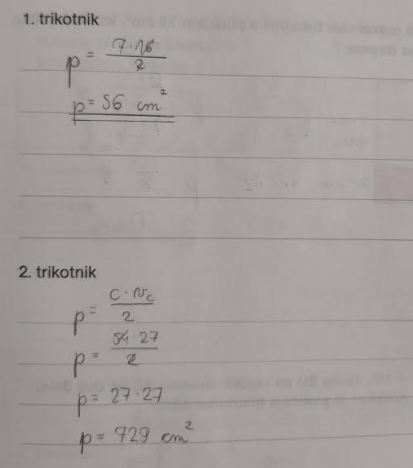 1. trikotnik
p = 7·16 / 2
p = 56 cm²
2. trikotnik
p = c·v_c / 2
p = 54·27 / 2
p = 27·27
p = 729 cm²